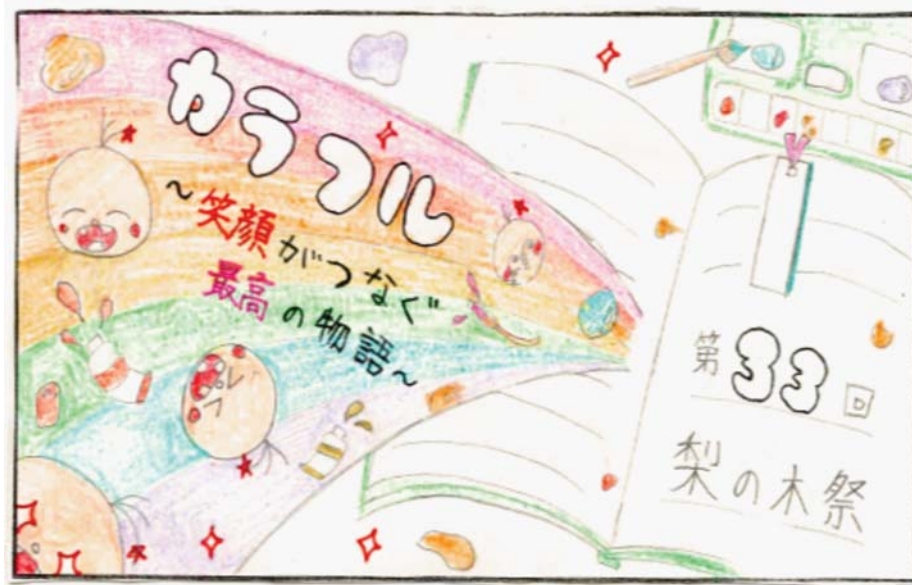 カラフル
~笑顔がつなぐ
最高の物語~
第33回
梨の木祭